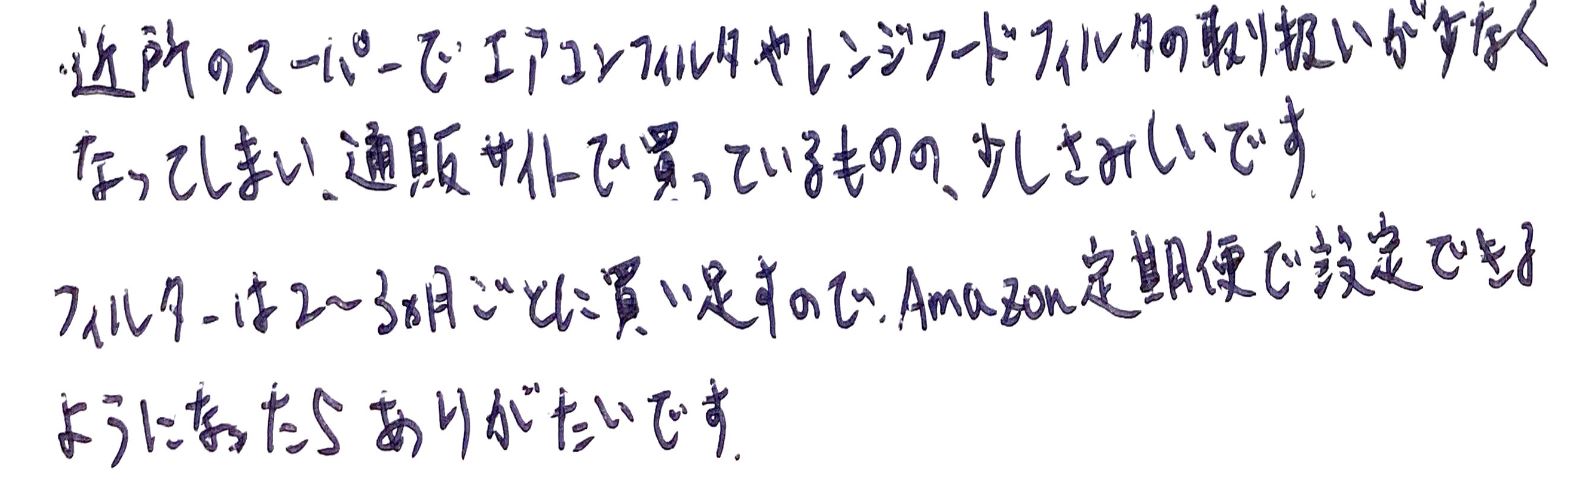 近所のスーパーでエアコンフィルタやレンジフードフィルタの取り扱いが少なく
なってしまい、通販サイトで買っているものの、少しさみしいです.
フィルターは2〜3ヵ月ごとに買い足すので、Amazon定期便で設定できる
ようになったらありがたいです.